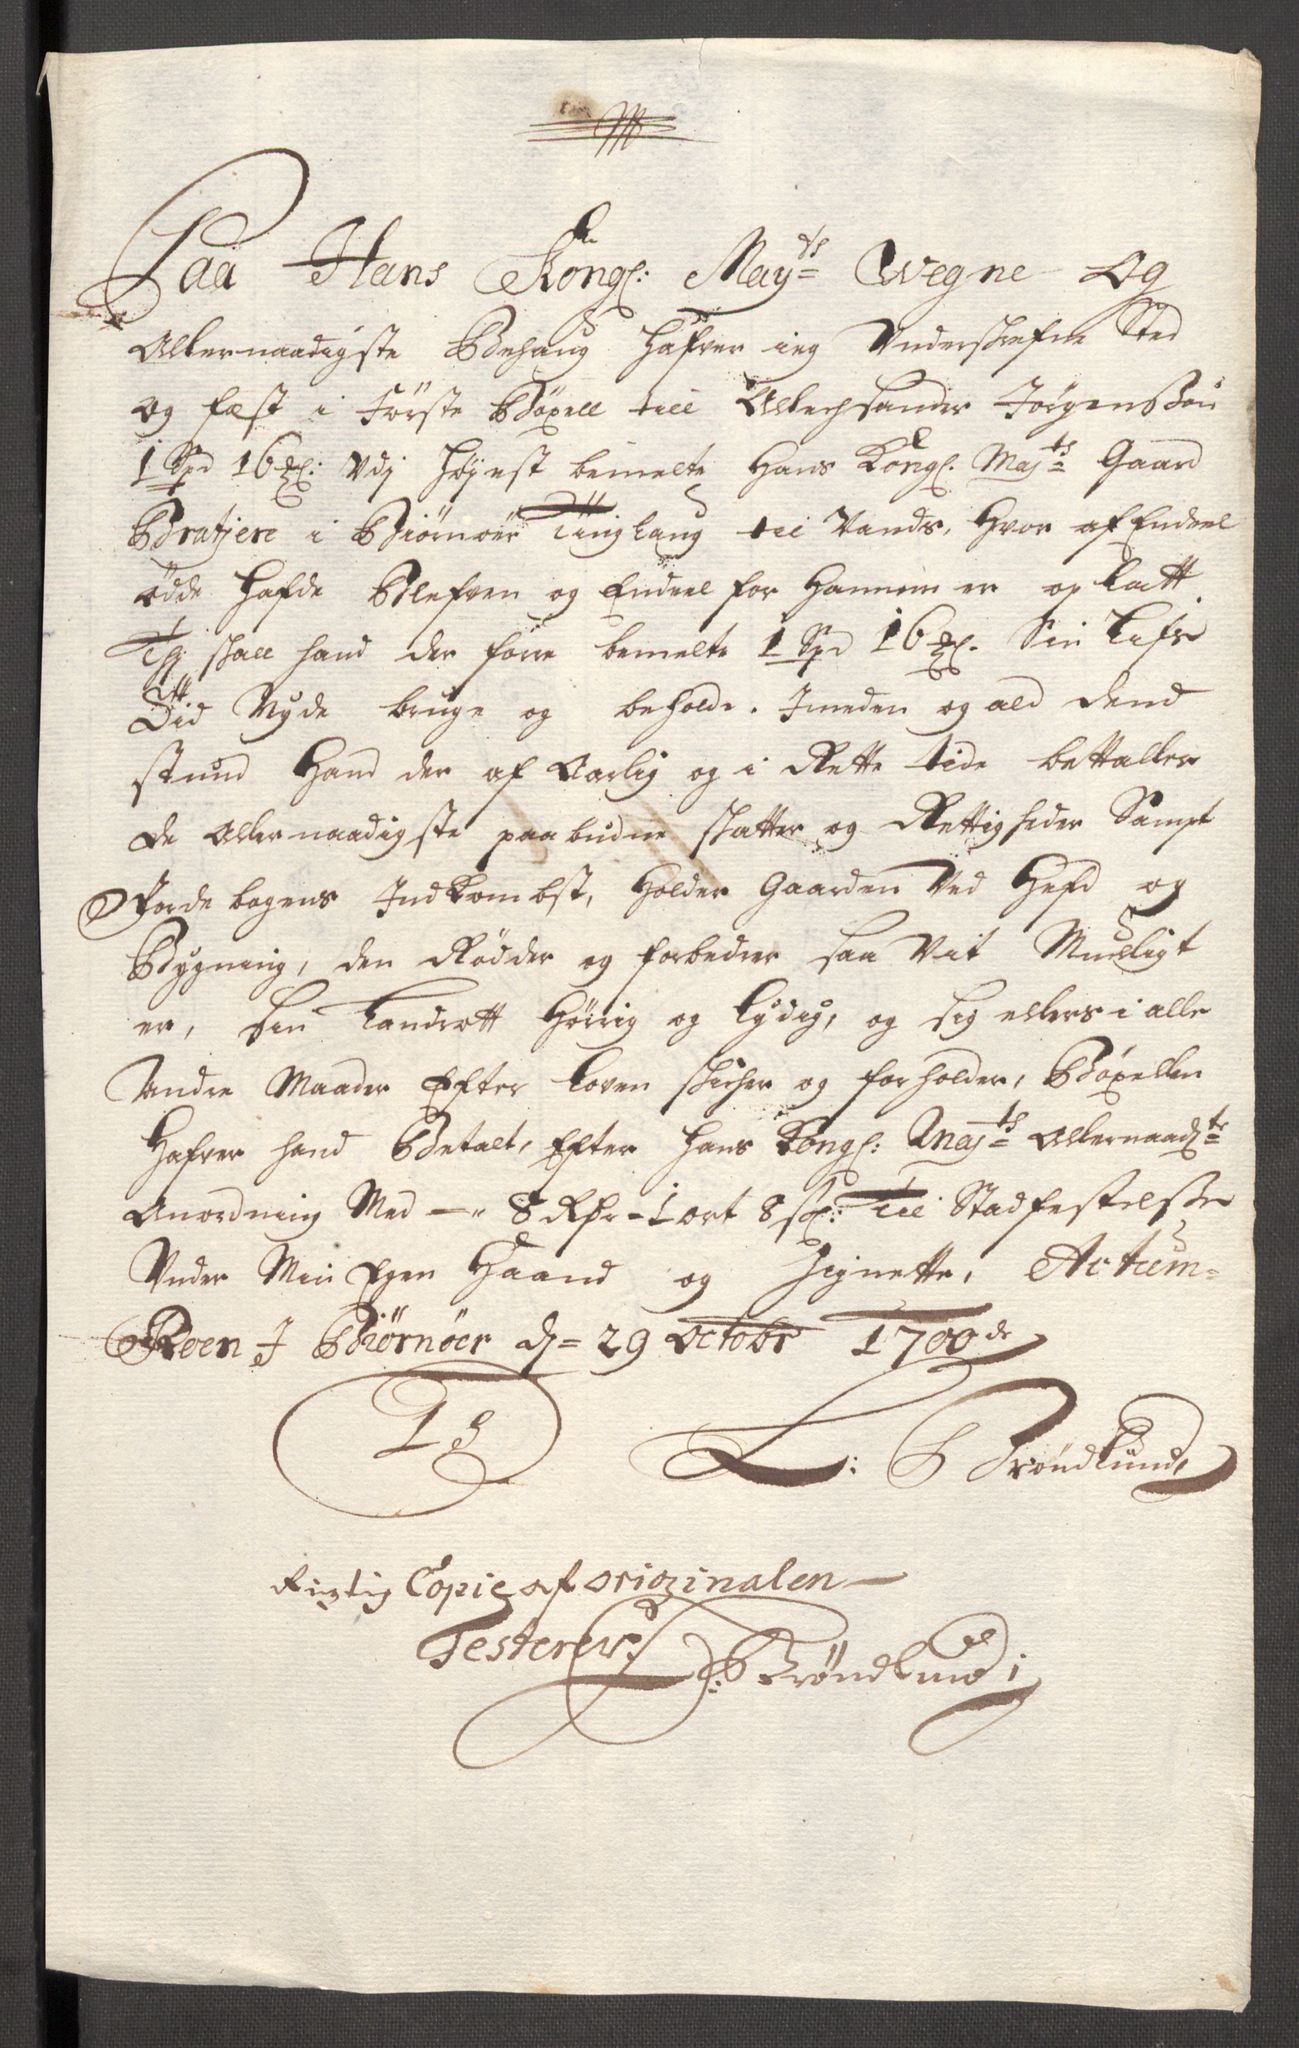 Paa Hans Kongl: Mayts Wegne og
Allernaadigste Behaug hafver ieg Underschrefne Sted
og fæst i Første Bøxell till Allechsander Jørgensøn
1 Spd 16 mk: Udj høyest bemelte Hans Kongl. Majts Gaard
Bratjere i Biørnøer Tinglaug till Vands, Hvor af Endeel
øde hafde Blefven og Endeel for Hannem er op ladt
Og schall hand der forre bemelte 1 Spd 16 mk. Sin Lifs
Tid Nyde bruge og beholde. Imeden og ald dend
stund Hand der af Aarlig og i Rette tide bettaller
de Allernaadigste paabudne schatter og Rettigheder Sampt
Jordebogens Indkombst, holder Gaarden Ved Hefd og
Bygning, den Rødder og forbedrer saa Vit Mueligt
er, sin Landrott Hørig og Lydig, og sig ellers i alle
Andre Maader Efter Loven schicher og forholder, Bøxellen
Hafver hand Betalt, Efter Hans Kongl: Majts Allernaadte
Anordning Med — 8 Rdr - 1 ort 8 sl: Til Stadfestelsse
Under Min Egen Haand og Signette, Actum
Roen J Biørnøer d= 29 Octobr 1700de
LS L: B Trøndlund,
Rigtig Copie af originalen —
Testerer L: B Trøndlund